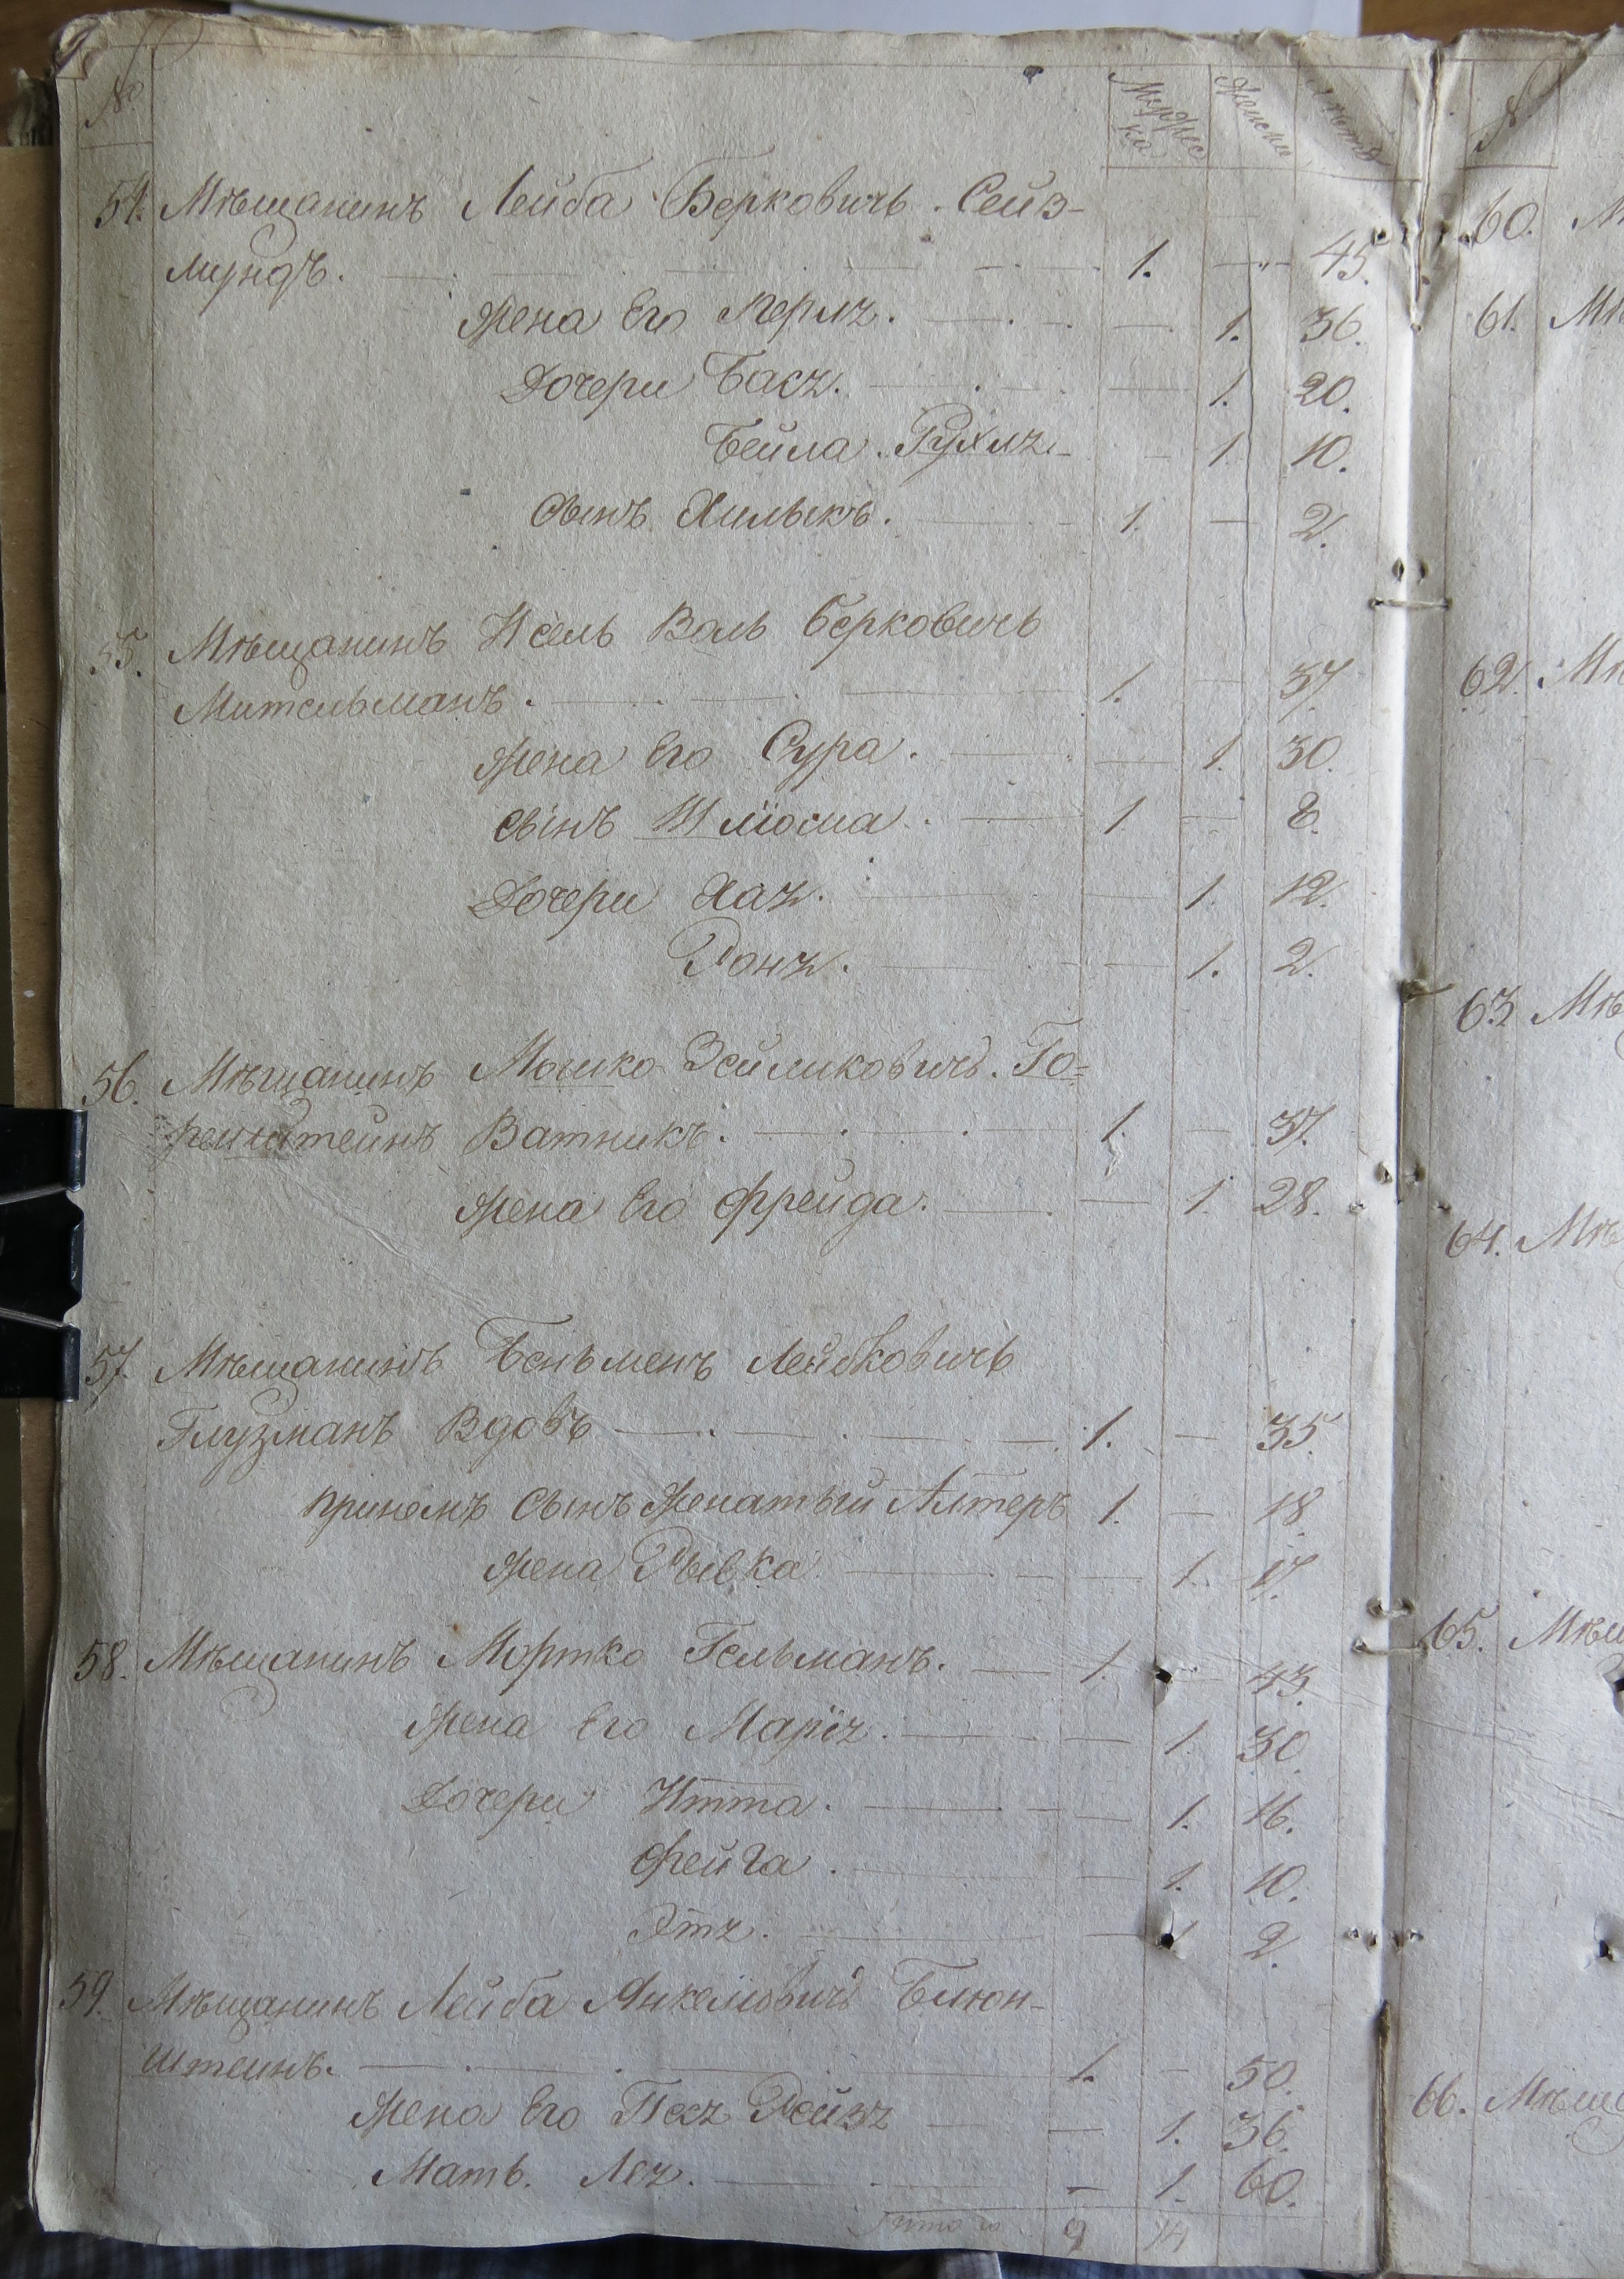 № Мужеска Женска Лѣта
54. Мѣщанинъ Лейба Берковичь Сейз-
мундъ. 1. — 45.
Жена Его Перля. — 1. 36.
Дочери Бася. — 1. 20.
Бейла Рухля — 1 10.
Сынъ Хилыкъ. 1. — 2.
55. Мѣщанинъ Исель Воль Берковичь
Мительманъ. 1. — 37.
Жена Его Сура. — 1. 30.
Сынъ Шлiома. 1 — 8.
Дочери Хая. — 1. 12.
Роня. — 1. 2.
56. Мѣщанинъ Мошко Зейликовичь Го=
ренштейнъ Ватникъ. 1. — 37.
Жена Его Фрейда. — 1. 28.
57. Мѣщанинъ Беньменъ Лейбковичь
Глузманъ Вдовъ 1. — 35.
Прiиомъ Сынъ Женатый Алтеръ 1. — 18.
Жена Рывка — 1. 17.
58. Мѣщанинъ Мортко Гельманъ. 1. — 43.
Жена Его Марiя. — 1. 30.
Дочери Итта. — 1. 16.
Фейга. — 1. 10.
Этя. — 1 2.
59. Мѣщанинъ Лейба Янкелiовичь Блюн-
штеинъ. 1. — 50.
Жена Его Песя Рейзя — 1. 36.
Мать. Лея. — 1. 60.
Итого 9 14
№
60. М
61. Мѣ
62. Мѣ
63. Мѣ
64. Мѣ
65. Мѣщ
66. Мѣщ